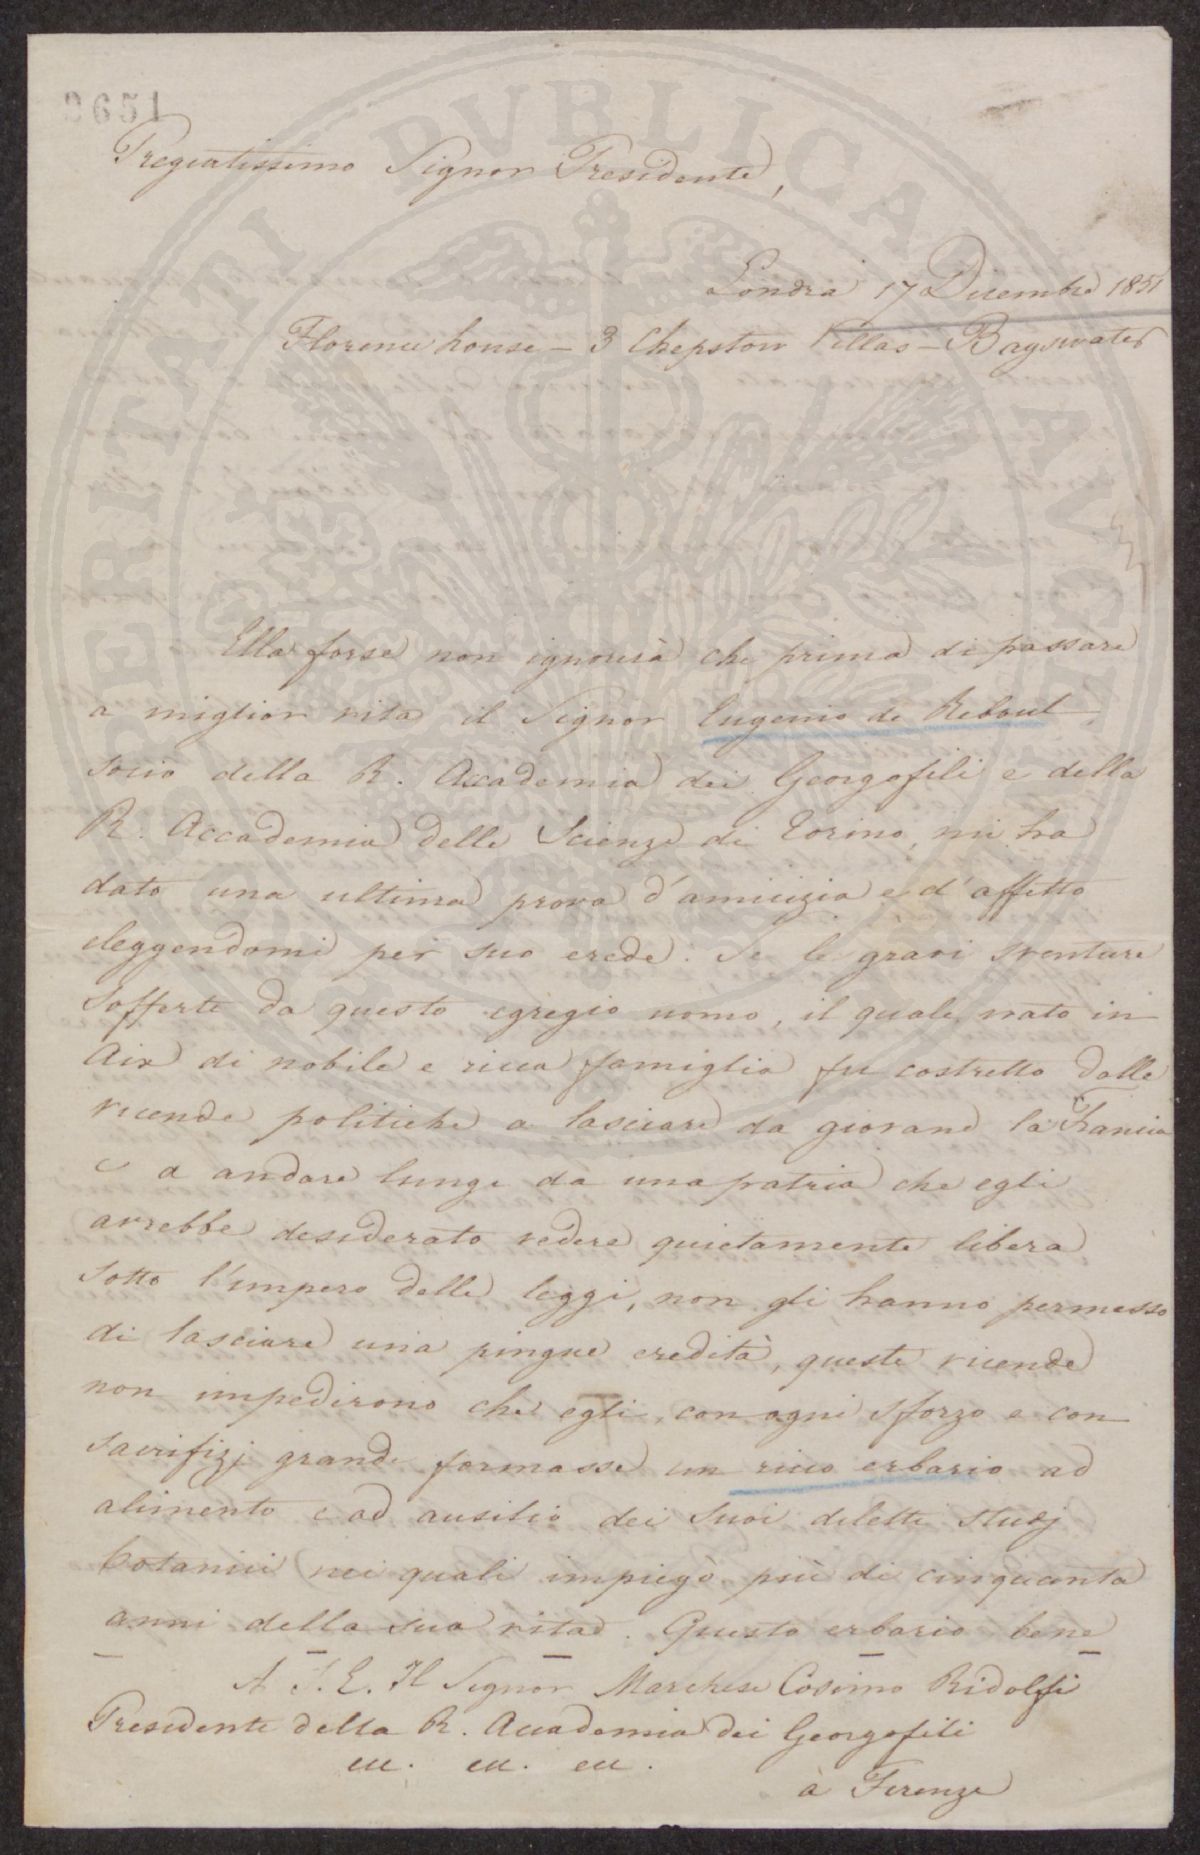 9651
Pregiatissimo Signor Presidente,
Londra 17 Dicembre 1851
Florence house – 3 Chepstow Villas – Bayswater
Ella forse non ignorerà che prima di passare
a miglior vita il Signor Eugenio de Reboul,
socio della R. Accademia dei Georgofili e della
R. Accademia delle Scienze di Torino, mi ha
dato una ultima prova d'amicizia e d'affetto
eleggendomi per suo erede. Se le gravi sventure
sofferte da questo egregio uomo, il quale nato in
Aix di nobile e ricca famiglia fu costretto dalle
vicende politiche a lasciare da giovane la Francia
e a andare lungi da una patria che egli
avrebbe desiderato vedere quietamente libera
sotto l'impero delle leggi, non gli hanno permesso
di lasciare una pingue eredità, queste vicende
non impedirono che egli, con ogni sforzo e con
sacrifizj grandi formasse un ricco erbario ad
alimento e ad ausilio dei suoi diletti studj
botanici nei quali impiegò più di cinquanta
anni della sua vita. Questo erbario bene
A S. E. Il Signor Marchese Cosimo Ridolfi
Presidente della R. Accademia dei Georgofili
ecc. ecc. ecc.
à Firenze
PROSPERITATI PVBLICAE AVGENDAE